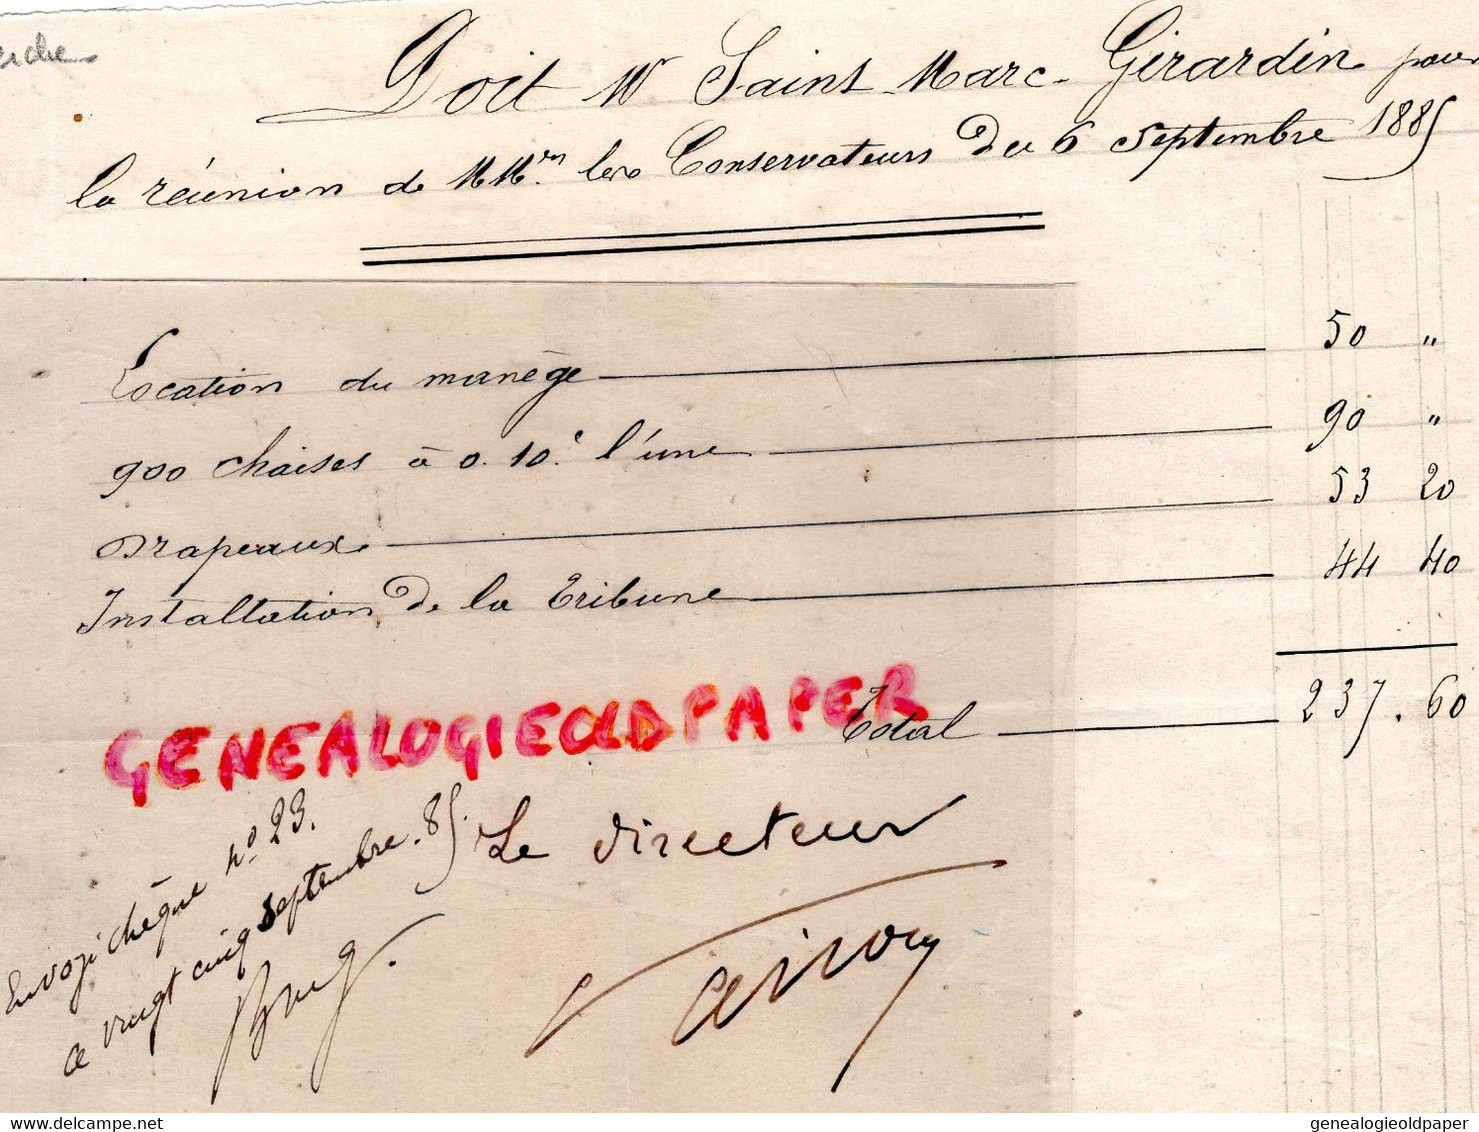 erche
Doit Mr Saint Marc-Girardin pour
la réunion de MMrs les Conservateurs du 6 Septembre 1885
Location du manège 50 "
900 chaises à 0.10c l'une 90 "
Drapeaux 53 20
Installation de la Tribune 44 40
GENEALOGIEOLDPAPER
Total 237.60
Envoyé chèque no 23.
ce vingt cinq septembre. 85.
Le Directeur
genealogieoldpaper